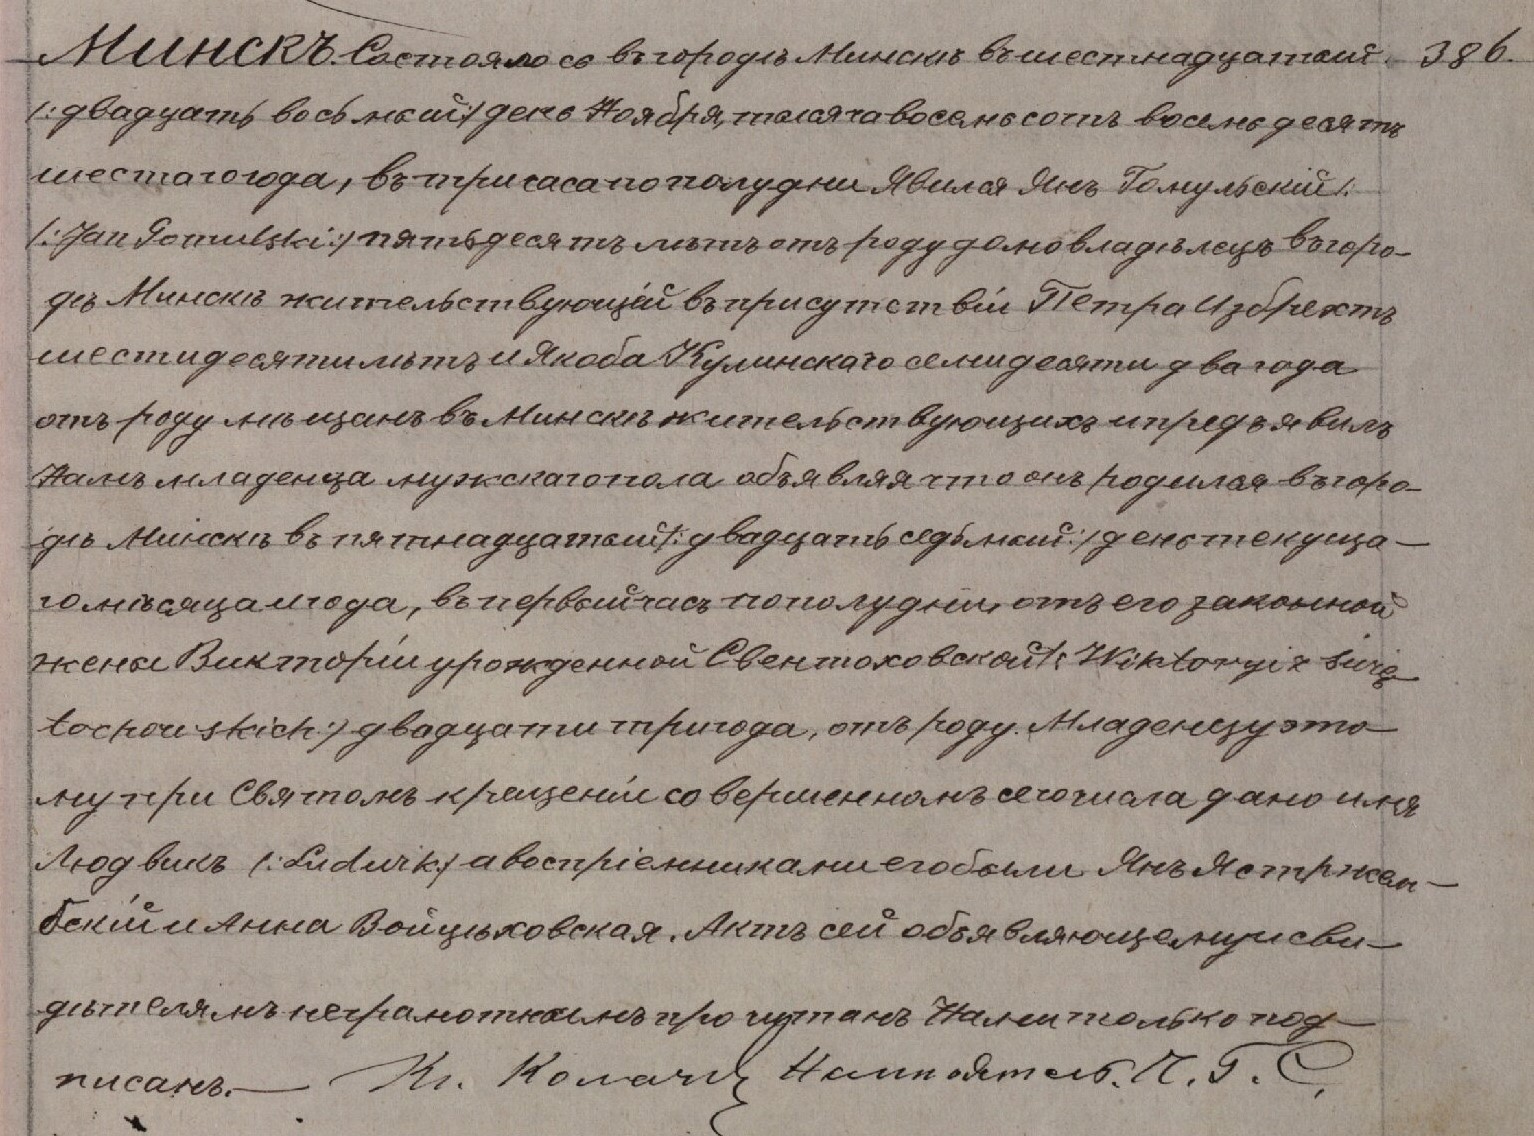 Минскъ. Состоялось въ городѣ Минскѣ въ шестнадцатый 386.
/:двадцать восьмый:/ день Ноября, тысяча восемьсотъ восемьдесятъ
шестаго года, въ три часа по полудни Явился Янъ Гомульскій /:
/:Jan Gomulski:/ пятьдесятъ лѣтъ отъ роду домовладѣлецъ въ горо-
дѣ Минскѣ жительствующій въ присутствіи Петра Избрехтъ
шестидесяти лѣтъ и Якоба Кулинскаго семидесяти два года
отъ роду мѣщанъ въ Минскѣ жительствующихъ и предъявилъ
Намъ младенца мужскаго пола объявляя что онъ родился въ горо-
дѣ Минскѣ въ пятнадцатый /:двадцать седьмый:/ день текуща-
го мѣсяца и года, въ первый часъ по полудни, отъ его законной
жены Викторіи урожденной Свентоховской /: Wiktoryi z Świę-
tochowskich:/ двадцати три года, отъ роду. Младенцу это-
му при Святомъ крещеніи совершенномъ сего числа дано имя
Людвикъ /:Ludwik:/ а воспріемниками его были Янъ Ястржем-
бскій и Анна Войцѣховская. Актъ сей объявляющему и сви-
дѣтелямъ неграмотнымъ прочитанъ Нами только под-
писанъ.— Кс. Настоятель. Ч. Г. С.